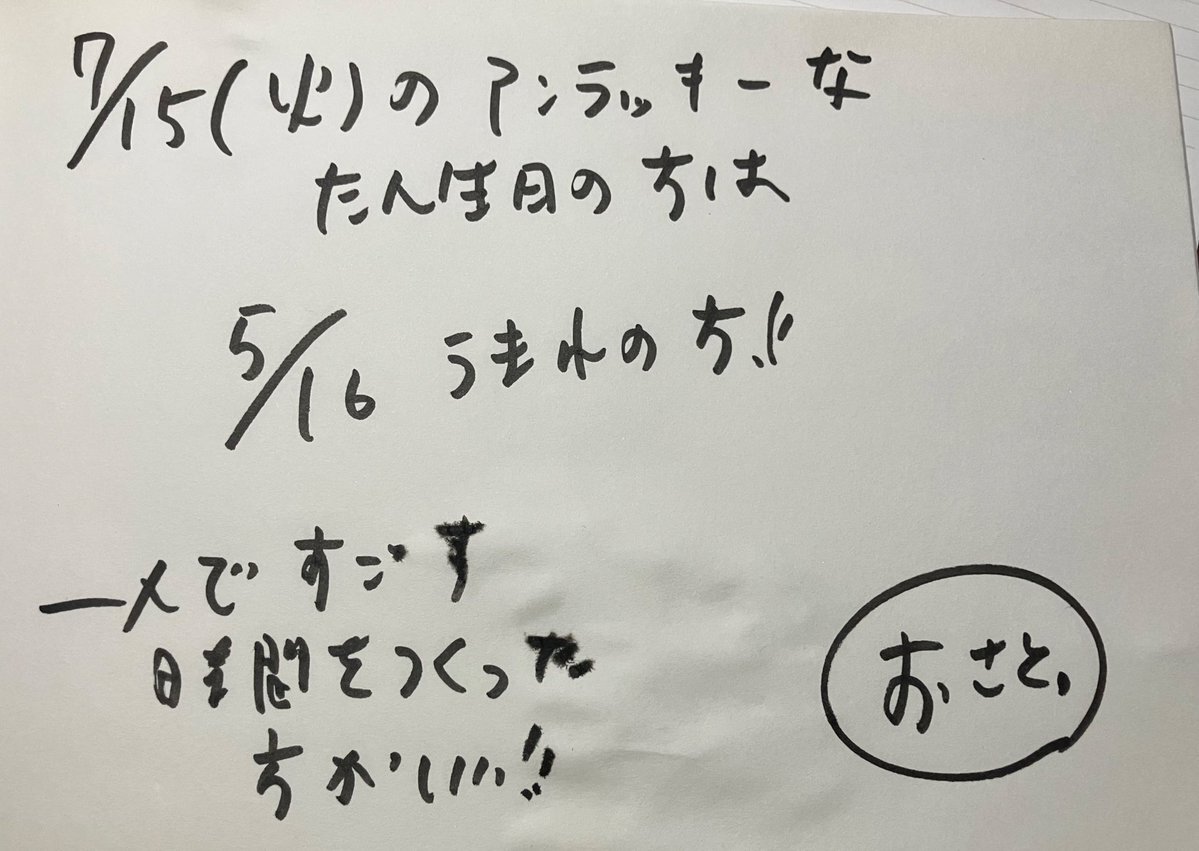 7/15(火)のアンラッキーな
たん生日の方は
5/16 うまれの方!!
一人ですごす
時間をつくった
方がいい!!
おさと、